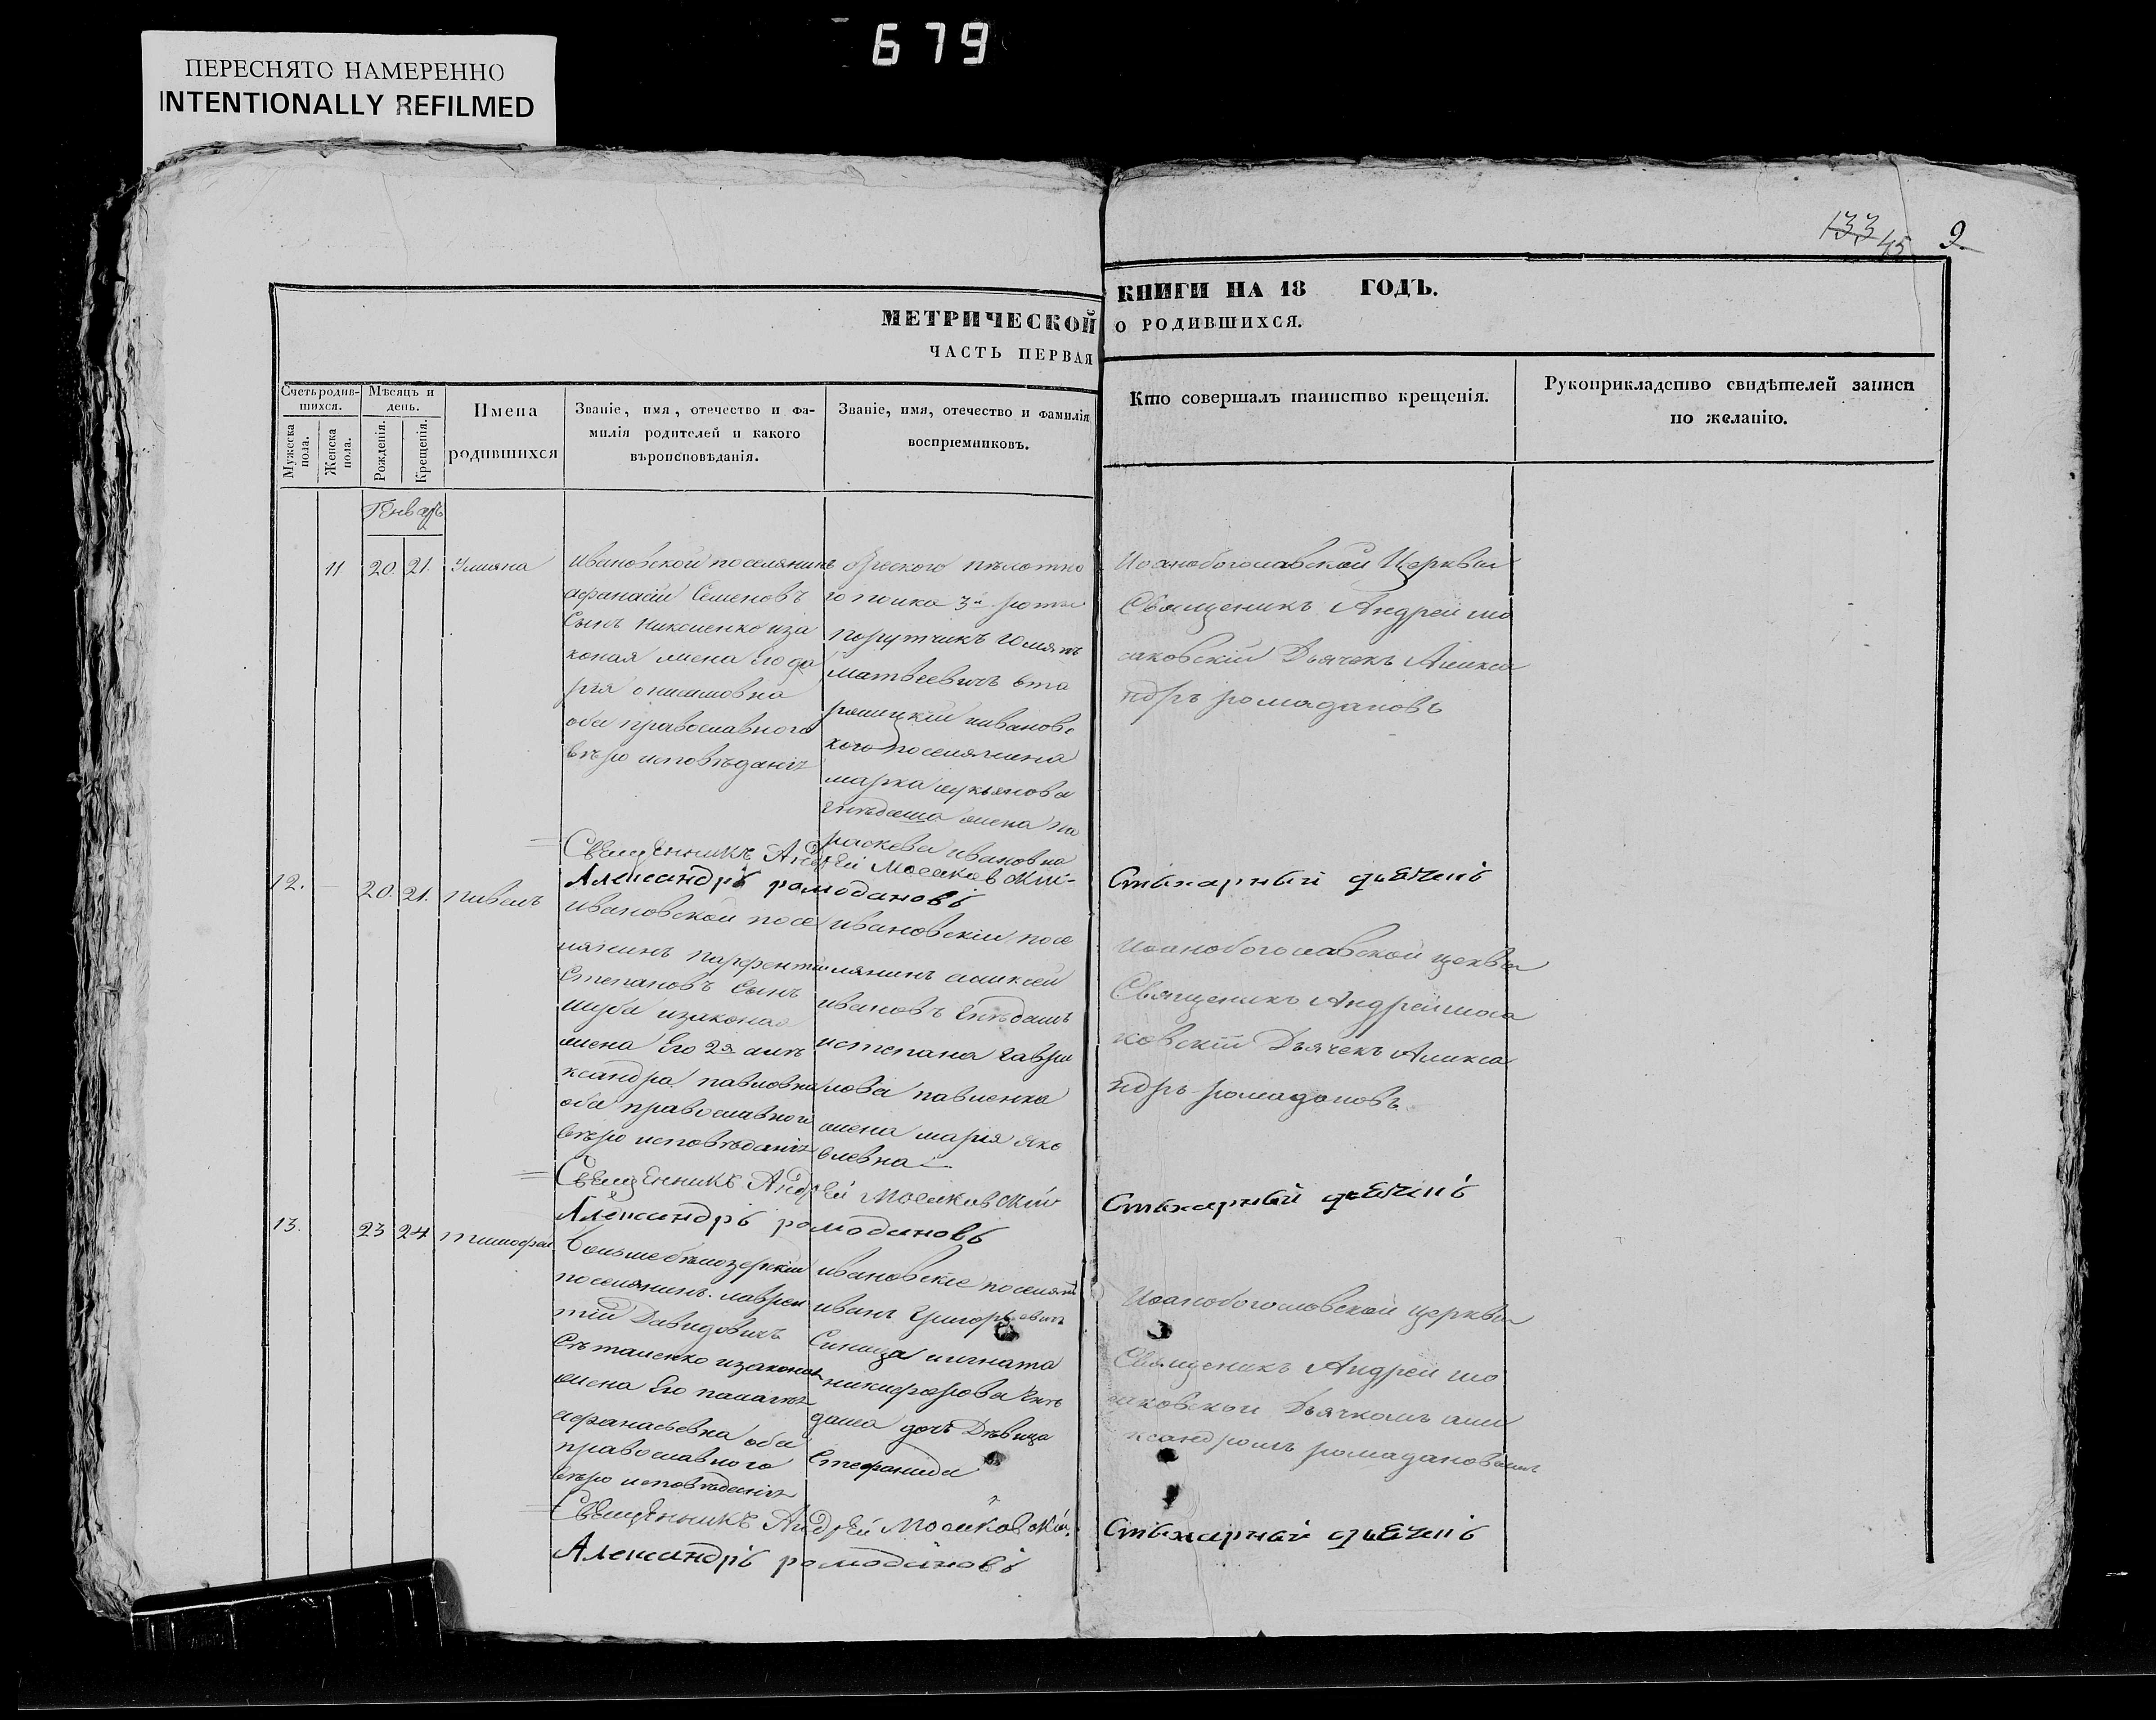 679
ПЕРЕСНЯТО НАМЕРЕННО
INTENTIONALLY REFILMED
133 45 9
МЕТРИЧЕСКОЙ
ЧАСТЬ ПЕРВАЯ
КНИГИ НА 18 ГОДЪ.
О РОДИВШИХСЯ.
Счетъ родив-
шихся.
Мужеска
пола.
Женска
пола.
Мѣсяцъ и
день.
Рожденія.
Крещенія.
Имена
родившихся
Званіе, имя, отечество и фа-
милія родителей и какого
вѣроисповѣданія.
Званіе, имя, отечество и фамилія
воспріемниковъ.
Кто совершалъ таинство крещенія.
Рукоприкладство свидѣтелей записи
по желанію.
Генварь
11 20. 21. Улияна
Ивановской поселянинъ
афанасій Семеновъ
Сынъ изза
коная жена Его да
рія
оба православного
вѣро исповѣданія
полка 3й роты
порутчикъ
матвеевичъ
ивановс
кого поселянина
марка лукьянова
жена па
раскева ивановна
Иоанобогославской Церквы
Священикъ Андрей мо
саковскій Дьячекъ Алекса
ндръ ромадановъ
Священникъ Андрей Мосаковскій
Александръ ромодановъ
Стихарный дьячекъ
12. 20. 21. павелъ
Ивановской посе
лянинъ парфентій
Степановъ Сынъ
шуба изаконая
жена Его 2я але
ксандра павловна
оба православного
вѣро исповѣданія
ивановскій посе
лянинъ аликсей
ивановъ
истепана гаври
лова павленка
жена марія яко
влевна
Иоанобогославской церквы
Священикъ Андрей моса
ковскій Дьячекъ Алекса
ндръ ромадановъ
Священникъ Андрей Мосаковскій
Александръ ромодановъ
Стихарный дьячекъ
13. 23 24 тимофей
большебелозерскій
поселянинъ лаврен
тій Давидовичъ
изаконая
жена Его
афанасьевна оба
православного
вѣро исповѣданія
ивановскіе поселян
иванъ Григорьевичъ
Синица иигната
никифорова
даша дочь Дѣвица
Стефанида
Иоанобогословской церквы
Священикъ Андрей мо
саковской Дьячкомъ але
ксандромъ ромадановымъ
Священникъ Андрей Мосаковскій
Александръ ромодановъ
Стихарный дьячекъ